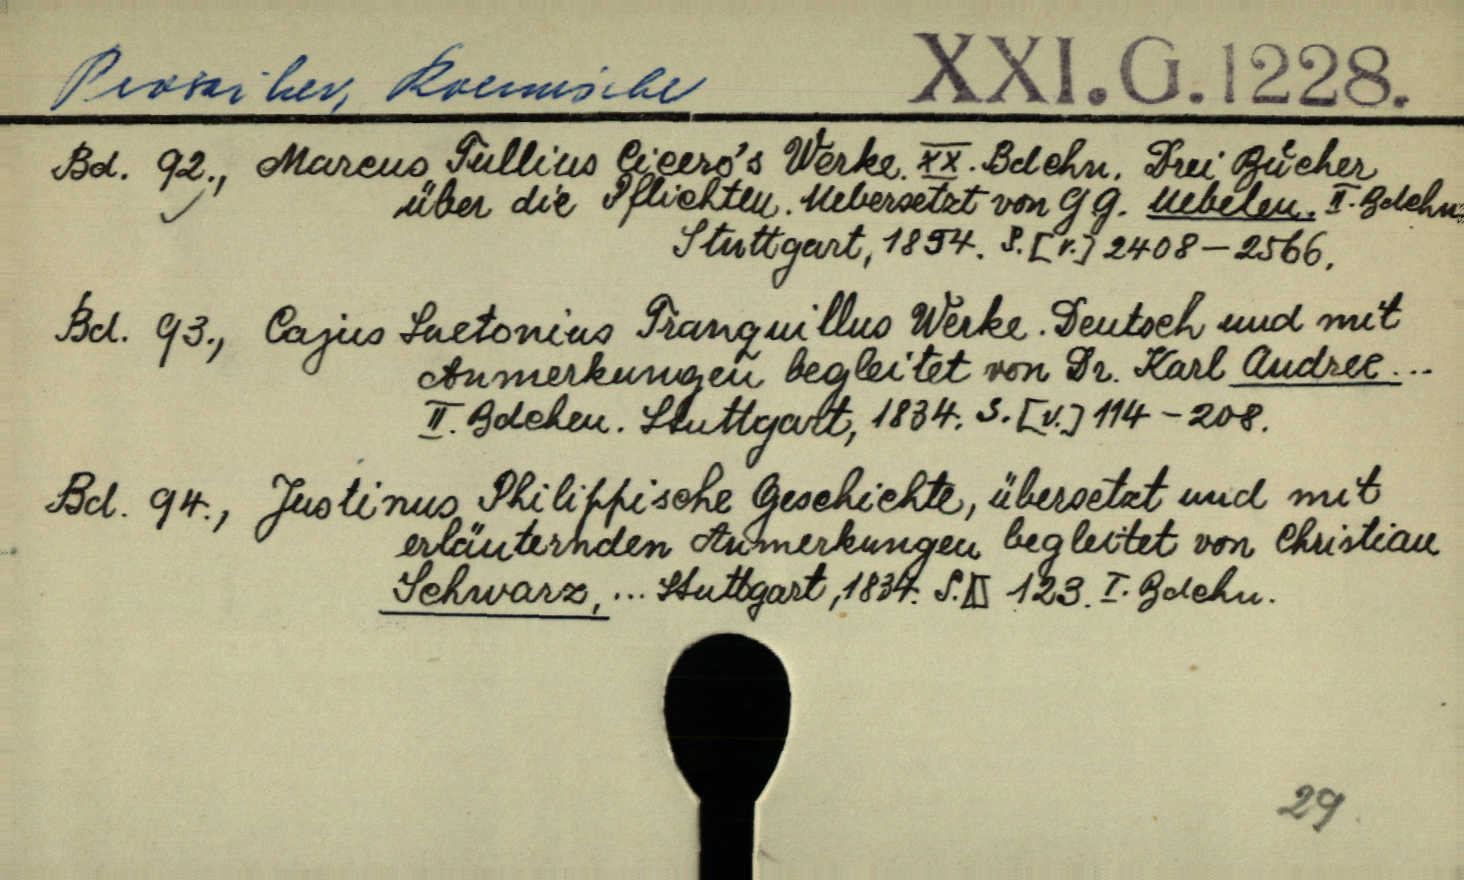 Prosaiker, Roemische
XXI.G.1228.
Bd. 92., Marcus Tullius Cicero's Werke. XX. Bdchn. Drei Bücher
über die Pflichten. Uebersetzt von G G. Uebelen. II. Bdchn.
Stuttgart, 1854. S. [v.] 2408-2566.
Bd. 93., Cajus Suetonius Tranquillus Werke. Deutsch und mit
Anmerkungen begleitet von Dr. Karl Andree ...
II. Bdchen. Stuttgart, 1834. S. [v.] 114-208.
Bd. 94., Justinus Philippische Geschichte, übersetzt und mit
erläuternden Anmerkungen begleitet von Christian
Schwarz, ... Stuttgart, 1834. S. 123. I. Bdchn.
29